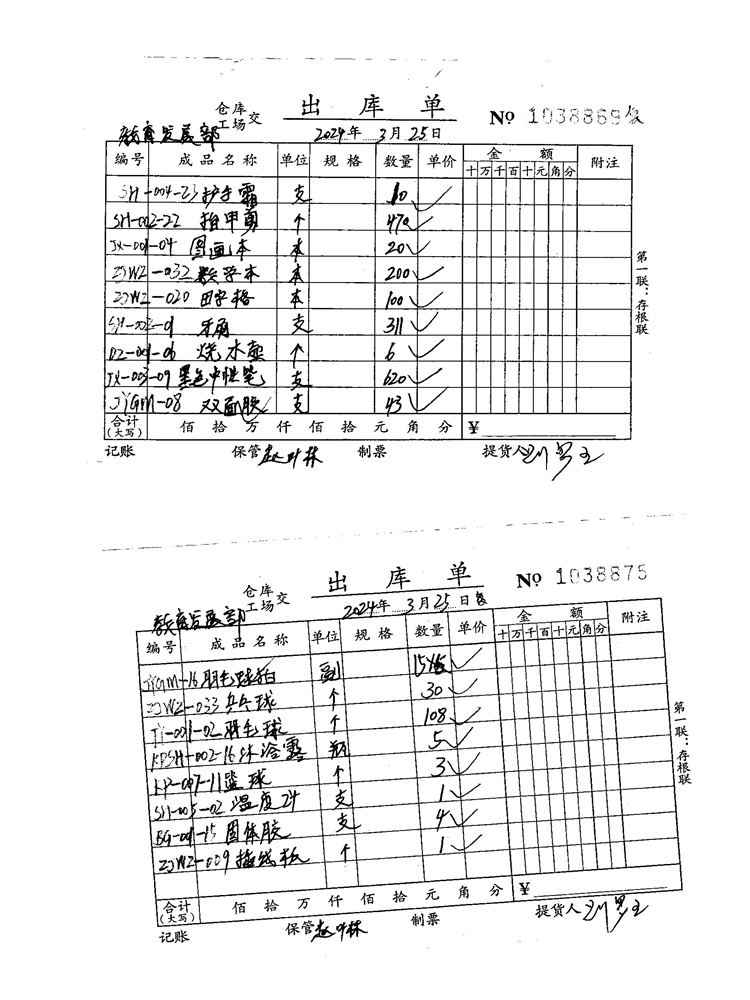 出 库 单
仓库
工场 交
No 1038869
教育发展部
2024年 3月25日
编号 成品名称 单位 规格 数量 单价 金额 附注
十 万 千 百 十 元 角 分
SH-004-23 护手霜 支 10
SH-002-22 指甲剪 个 470
JX-001-04 图画本 本 20
ZJWZ-032 数学本 本 200
ZJWZ-020 田字格 本 100
SH-002-01 牙膏 支 311
DZ-001-06 烧水壶 个 6
JX-003-09 黑色中性笔 支 620
JYGM-08 双面胶 支 43
合计
(大写) 佰 拾 万 仟 佰 拾 元 角 分 ¥
记账 保管 赵叶林 制票 提货人
第一联：存根联
出 库 单
仓库
工场 交
No 1038875
教育发展部
2024年 3月25日
编号 成品名称 单位 规格 数量 单价 金额 附注
十 万 千 百 十 元 角 分
JYGM-16 羽毛球拍 副 15
ZJWZ-033 乒乓球 个 30
TY-001-02 羽毛球 个 108
KPSH-002-16 沐浴露 瓶 5
KP-007-11 篮球 个 3
SH-005-02 温度计 支 1
BG-001-15 固体胶 支 4
ZJWZ-009 插线板 个 1
合计
(大写) 佰 拾 万 仟 佰 拾 元 角 分 ¥
记账 保管 赵叶林 制票 提货人
第一联：存根联